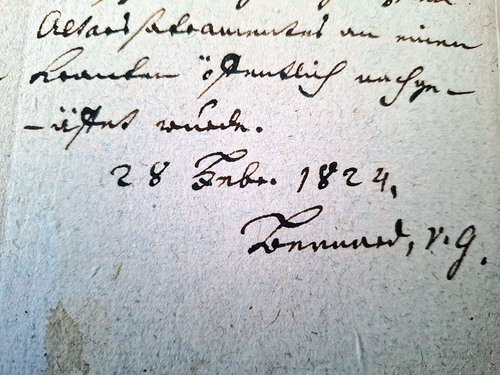 Altarssakramentes an einen
Kranken öffentlich nachge-
-äfft wurde.
28 Febr. 1824.
Bernard, v. G.